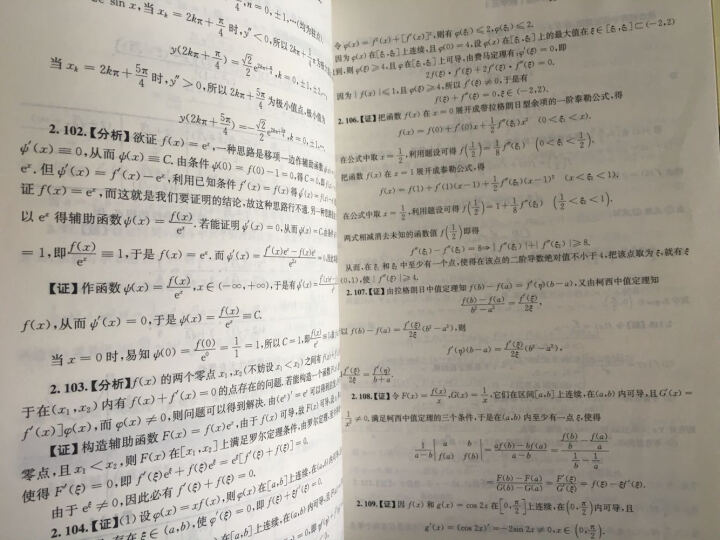 sin x,当 x_k = 2kπ + π/4 时,y″<0,所以 2kπ + π/4
y(2kπ + π/4) = √2/2 e^(2kπ+π/4), k = 0, ±1,
当 x_k = 2kπ + 5π/4 时,y″>0,所以 2kπ + 5π/4 为极小值点,极小值为
y(2kπ + 5π/4) = −√2/2 e^(2kπ+5π/4), k = 0, ±1,
2.102.【分析】欲证 f(x) = e^x,一种思路是移项一边作辅助函数
ψ′(x) ≡ 0,从而 ψ(x) ≡ C. 由条件 ψ(0) = f(0) − 1 = 0,得 C = 0,
e^x. 但 ψ′(x) = f′(x) − e^x,利用已知条件 f′(x) = f(x) 得
证 f(x) = e^x,而这就是我们要证明的结论,故这种思路行不通.另一种思路
以 e^x 得辅助函数 ψ(x) = f(x)/e^x. 若能证明 ψ′(x) = 0,从而 ψ(x) = C,
= 1,即 f(x)/e^x ≡ 1,于是 f(x) = e^x. 而 ψ′(x) =
【证】作函数 ψ(x) = f(x)/e^x, x ∈ (−∞,+∞),于是有 ψ′(x) =
f(x),从而 ψ′(x) = 0,于是 ψ(x) = f(x)/e^x ≡ C.
当 x = 0 时,易知 ψ(0) = f(0)/e^0 = 1/1 = 1,所以 C = 1,即 f(x)/e^x
2.103.【分析】f(x) 的两个零点 x₁,x₂(不妨设 x₁<x₂) 之间有
于在(x₁,x₂) 内有 f(x) + f′(x) = 0 的点存在的问题. 若能构造一个函数
f′(x)]φ(x),而 φ(x) ≠ 0,则问题可以得到解决. 由(e^x)′ = e^x 可以
【证】构造辅助函数 F(x) = f(x)e^x,由于 f(x) 可导,故 F(x)
零点,且 x₁<x₂,则 F(x) 在[x₁,x₂] 上满足罗尔定理条件,由罗尔定理,
使得 F′(ξ) = 0,即 f′(ξ)e^ξ + f(ξ)e^ξ = e^ξ[f′(ξ) + f(ξ)] = 0.
由于 e^ξ ≠ 0,因此必有 f′(ξ) + f(ξ) = 0.
2.104.【证】(1) 设 φ(x) = xf(x),则 φ(x) 在[a,b] 上连续,在(a,b)
存在 ξ ∈ (a,b),使 φ′(ξ) = 0,即 f(ξ) + ξf′(ξ) = 0.
令 φ(x) = f²(x) + [f′(x)]²,则有 φ(ξ₁) ≤ 2, φ(ξ₂) ≤ 2.
因为 φ(x) 在[ξ₁,ξ₂] 上连续,且 φ(0) = 4,设 φ(x) 在[ξ₁,ξ₂] 上的最大值在 ξ ∈ [ξ₁,ξ₂] ⊂ (−2,2)
到,则 φ(ξ) ≥ 4,且 φ 在[ξ₁,ξ₂] 上可导,由费马定理有:φ′(ξ) = 0,即
2f(ξ)·f′(ξ) + 2f′(ξ)·f″(ξ) = 0.
因为 |f(x)| ≤ 1,且 φ(ξ) ≥ 4,所以 f′(ξ) ≠ 0,于是有
f(ξ) + f″(ξ) = 0, ξ ∈ (−2,2).
2.106.【证】把函数 f(x) 在 x = 0 展开成带拉格朗日型余项的一阶泰勒公式,得
f(x) = f(0) + f′(0)x + 1/2 f″(ξ₁)x² (0<ξ₁<x).
在公式中取 x = 1/2,利用题设可得 f(1/2) = 1/8 f″(ξ₁) (0<ξ₁<1/2).
把函数 f(x) 在 x = 1 展开成泰勒公式,得
f(x) = f(1) + f′(1)(x−1) + 1/2 f″(ξ₂)(x−1)² (x<ξ₂<1).
在公式中取 x = 1/2,利用题设可得 f(1/2) = 1 + 1/8 f″(ξ₂) (1/2<ξ₂<1).
两式相减消去未知的函数值 f(1/2) 即得
f″(ξ₁) − f″(ξ₂) = 8 ⇒ |f″(ξ₁)| + |f″(ξ₂)| ≥ 8.
从而,在 ξ₁ 和 ξ₂ 中至少有一个点,使得在该点的二阶导数绝对值不小于 4,把该点取为 ξ,就有 ξ
(0,1),使 |f″(ξ)| ≥ 4.
2.107.【证】由拉格朗日中值定理知 f(b) − f(a) = f′(η)(b−a),又由柯西中值定理知
(f(b) − f(a))/(b² − a²) = f′(ξ)/2ξ,
以 f(b) − f(a) = f′(ξ)/2ξ (b² − a²),则
f′(η)(b−a) = f′(ξ)/2ξ (b² − a²),
f′(ξ)/2ξ = f′(η)/(b+a).
2.108.【证】令 F(x) = f(x)/x, G(x) = 1/x,它们在区间[a,b] 上连续,在(a,b) 内可导,且 G′(x) =
−1/x² ≠ 0,满足柯西中值定理的三个条件,于是在(a,b) 内至少有一点 ξ,使得
1/(a−b) |a b; f(a) f(b)| = (af(b) − bf(a))/(a−b) = (f(b)/b − f(a)/a)/(1/b − 1/a)
= (F(b) − F(a))/(G(b) − G(a)) = F′(ξ)/G′(ξ) = f(ξ) − ξf′(ξ).
2.109.【证】因 f(x) 和 g(x) = cos 2x 在[0,π/2] 上连续,在(0,π/2) 内可导,且
g′(x) = (cos 2x)′ = −2sin 2x ≠ 0, x ∈ (0,π/2),